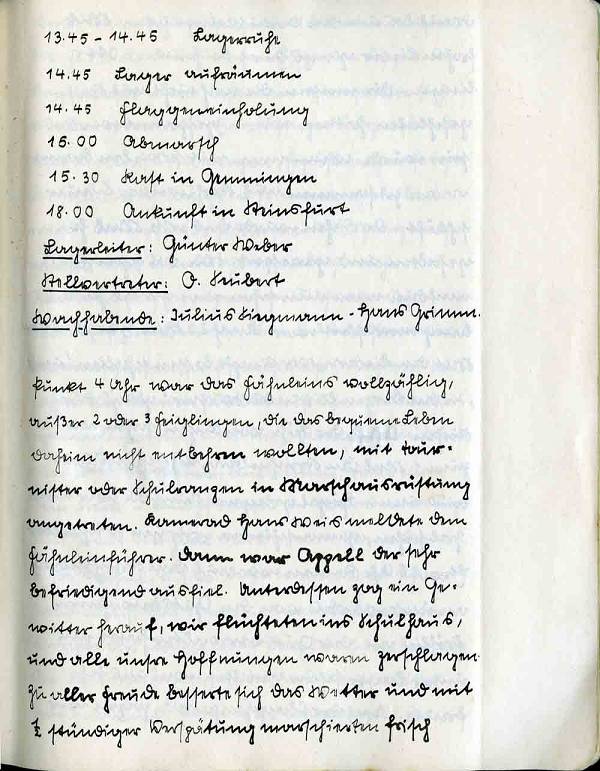 13.45 - 14.45 Lagerruhe
14.45 Lager aufräumen
14.45 Flaggeneinholung
15.00 Abmarsch
15.30 Rast in Gemmingen
18.00 Ankunft in Steinsfurt
Lagerleiter: Günter Weber
Stellvertreter: O. Seubert
Wachhabende: Julius Siegmann - Hans Grimm.
Punkt 4 Uhr war das Fähnleins vollzählig,
außer 2 oder 3 Feiglingen, die das bequeme Leben
daheim nicht entbehren wollten, mit Tour-
nister oder Schulranzen in Marschausrüstung
angetreten. Kamerad Hans Weis meldete dem
Fähnleinführer. Dann war Appell der sehr
befriedigend ausfiel. Unterdessen zog ein Ge-
witter herauf, wir flüchteten ins Schulhaus,
und alle unsre Hoffnungen waren zerschlagen.
Zu aller Freude besserte sich das Wetter und mit
½ stündiger Verspätung marschierten frisch